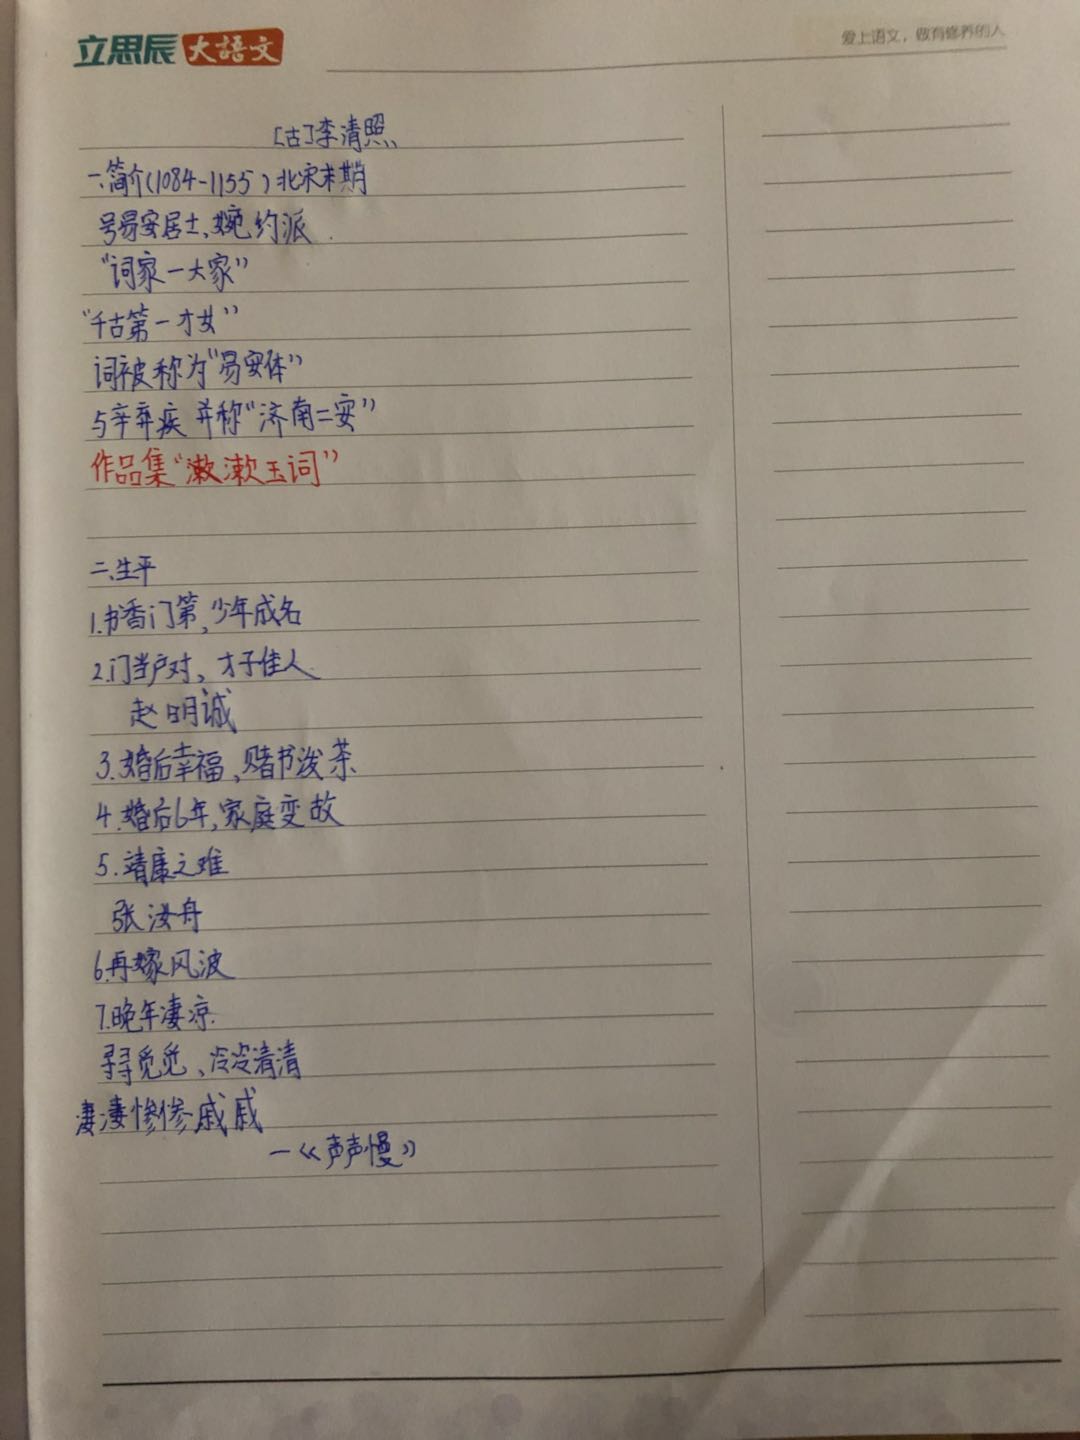 立思辰大語文
爱上语文，做有修养的人
[古]李清照
一、简介(1084-1155)北宋末期
号易安居士、婉约派.
“词家一大家”
“千古第一才女”
词被称为“易安体”
与辛弃疾并称“济南二安”
作品集“漱漱玉词”
二、生平
1.书香门第,少年成名
2.门当户对、才子佳人
赵明诚
3.婚后幸福、赌书泼茶
4.婚后6年,家庭变故
5.靖康之难
张汝舟
6.再嫁风波
7.晚年凄凉.
寻寻觅觅、冷冷清清
凄凄惨惨戚戚
—《声声慢》